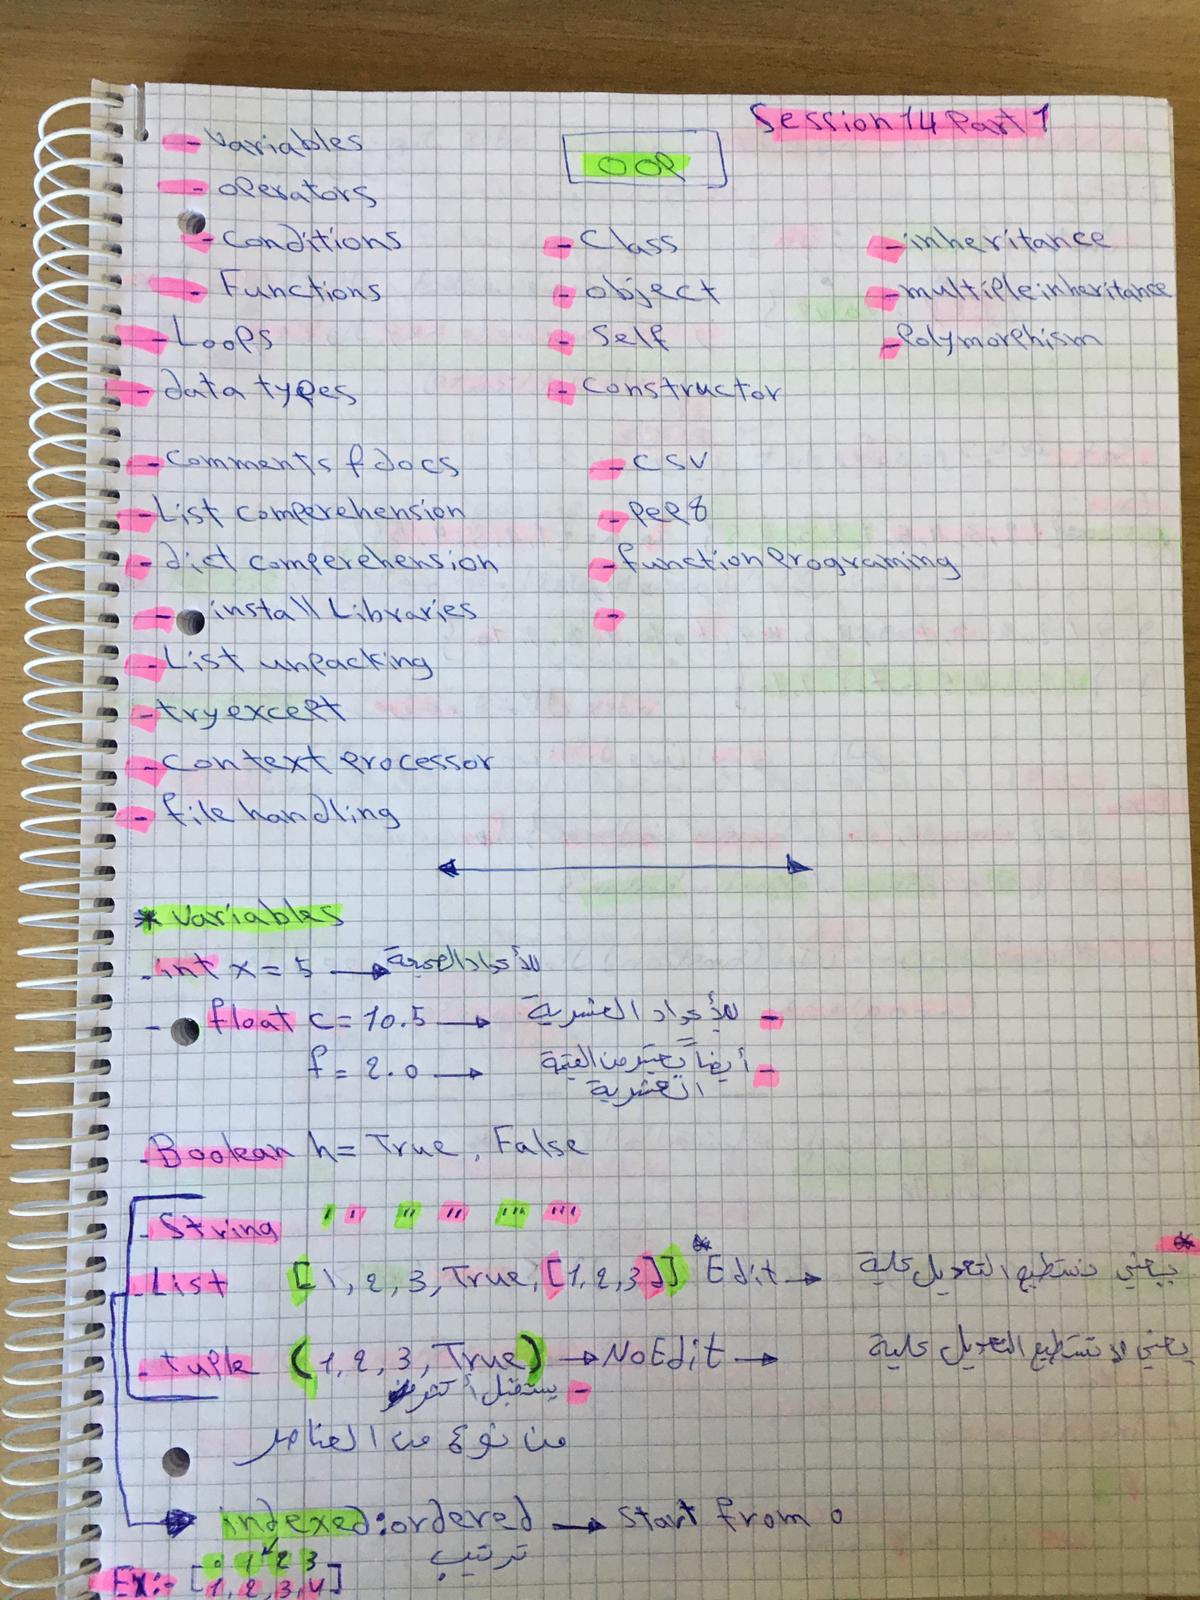 Session 14 Part 1
- Variables
OOP
- operators
- Conditions
- Functions
- Loops
- data types
- Class
- object
- Self
- Constructor
- inheritance
- multiple inheritance
- Polymorphism
- Comments & docs
- List comperehension
- dict comperehension
- install Libraries
- List unpacking
- try except
- Context Processor
- file handling
- CSV
- Pep8
- function Programing
-
* Variables
- int x = 5 → للأعداد الصحيحة
- float c = 10.5 → للأعداد العشرية -
f = 2.0 → - أيضاً يعتبر من القيمة
العشرية
- Boolean h = True , False
- String ' ' " " ''' '''
- List [1, 2, 3, True, [1,2,3]] * Edit → يعني نستطيع التعديل عليه *
- tuple (1, 2, 3, True) → No Edit → يعني لا نستطيع التعديل عليه
- يستقبل أكثر من
من نوع من العناصر
indexed: ordered → Start from 0
ترتيب
0 1 2 3
Ex:- [1, 2, 3, 4]